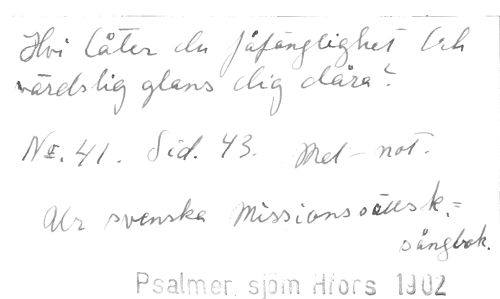 Hvi låter du fåfänglighet Och
värdslig glans dig dåra?
No. 41. Sid. 43. Mel- not.
Ur svenska Missionssällsk.=
sångbok.
Psalmer, sjöm Hfors 1902